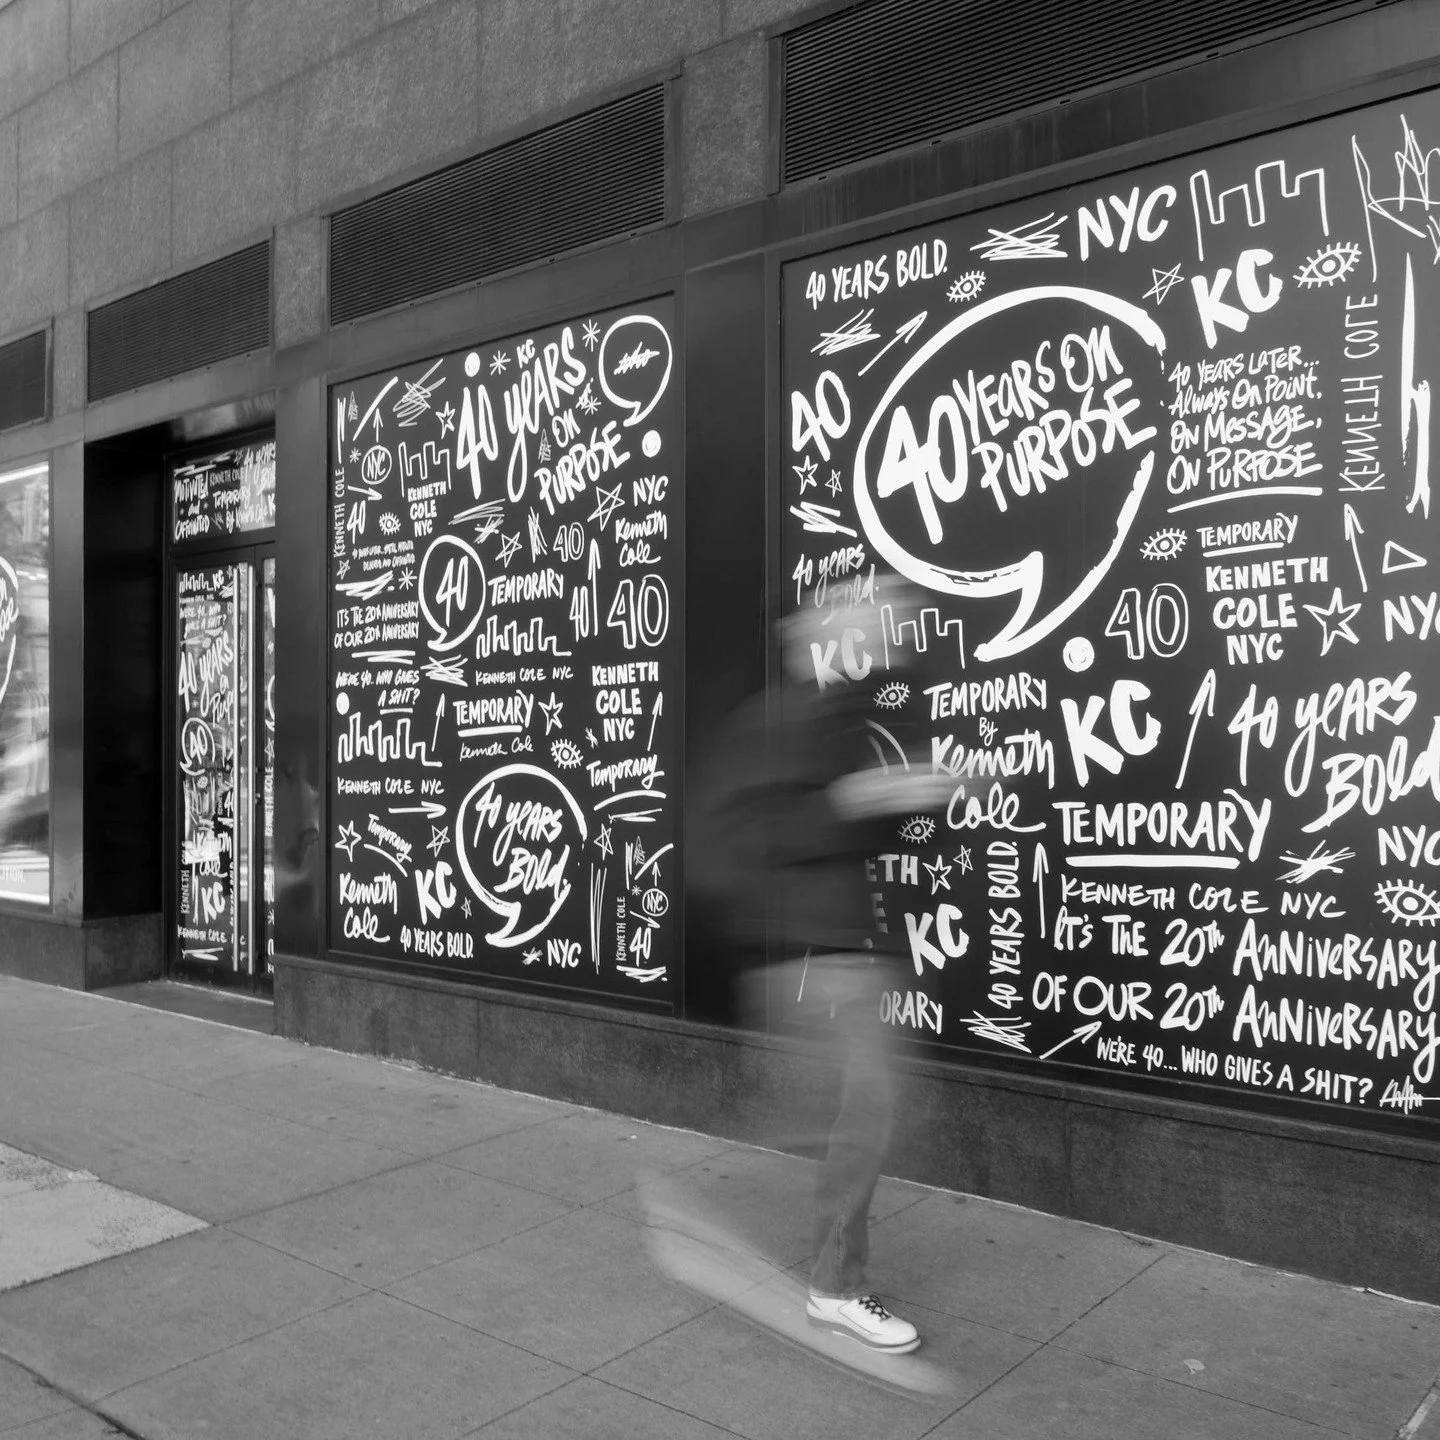 MOTIVATED
KENNETH COLE
CAFFEINATED
TEMPORARY
40 YEARS
KC
KENNETH COLE
KC
40 YEARS
ON
PURPOSE
NYC
KENNETH COLE
KENNETH
COLE
NYC
40
NYC
Kenneth
Cole
40
40
TEMPORARY
40
40
IT'S THE 20th ANNIVERSARY
OF OUR 20th ANNIVERSARY
WE'RE 40. WHO GIVES
A SHIT?
KENNETH COLE NYC
KENNETH
COLE
NYC
TEMPORARY
Kenneth Cole
KENNETH COLE NYC
Temporary
Temporary
40 YEARS
BOLD.
Kenneth
Cole
KC
40 YEARS BOLD.
NYC
KENNETH COLE
NYC
40
40 YEARS BOLD.
NYC
KC
KENNETH COLE
40
40 YEARS ON
PURPOSE
40 YEARS LATER...
Always On Point.
ON MESSAGE,
ON PURPOSE
40 YEARS
BOLD.
KC
TEMPORARY
KENNETH
COLE
NYC
40
NYC
TEMPORARY
By
Kenneth
Cole
KC
40 YEARS
BOLD
TEMPORARY
NYC
ETH
E
KC
40 YEARS BOLD.
KENNETH COLE NYC
IT'S THE 20th ANNIVERSARY
OF OUR 20th ANNIVERSARY
ORARY
WE'RE 40... WHO GIVES A SHIT?